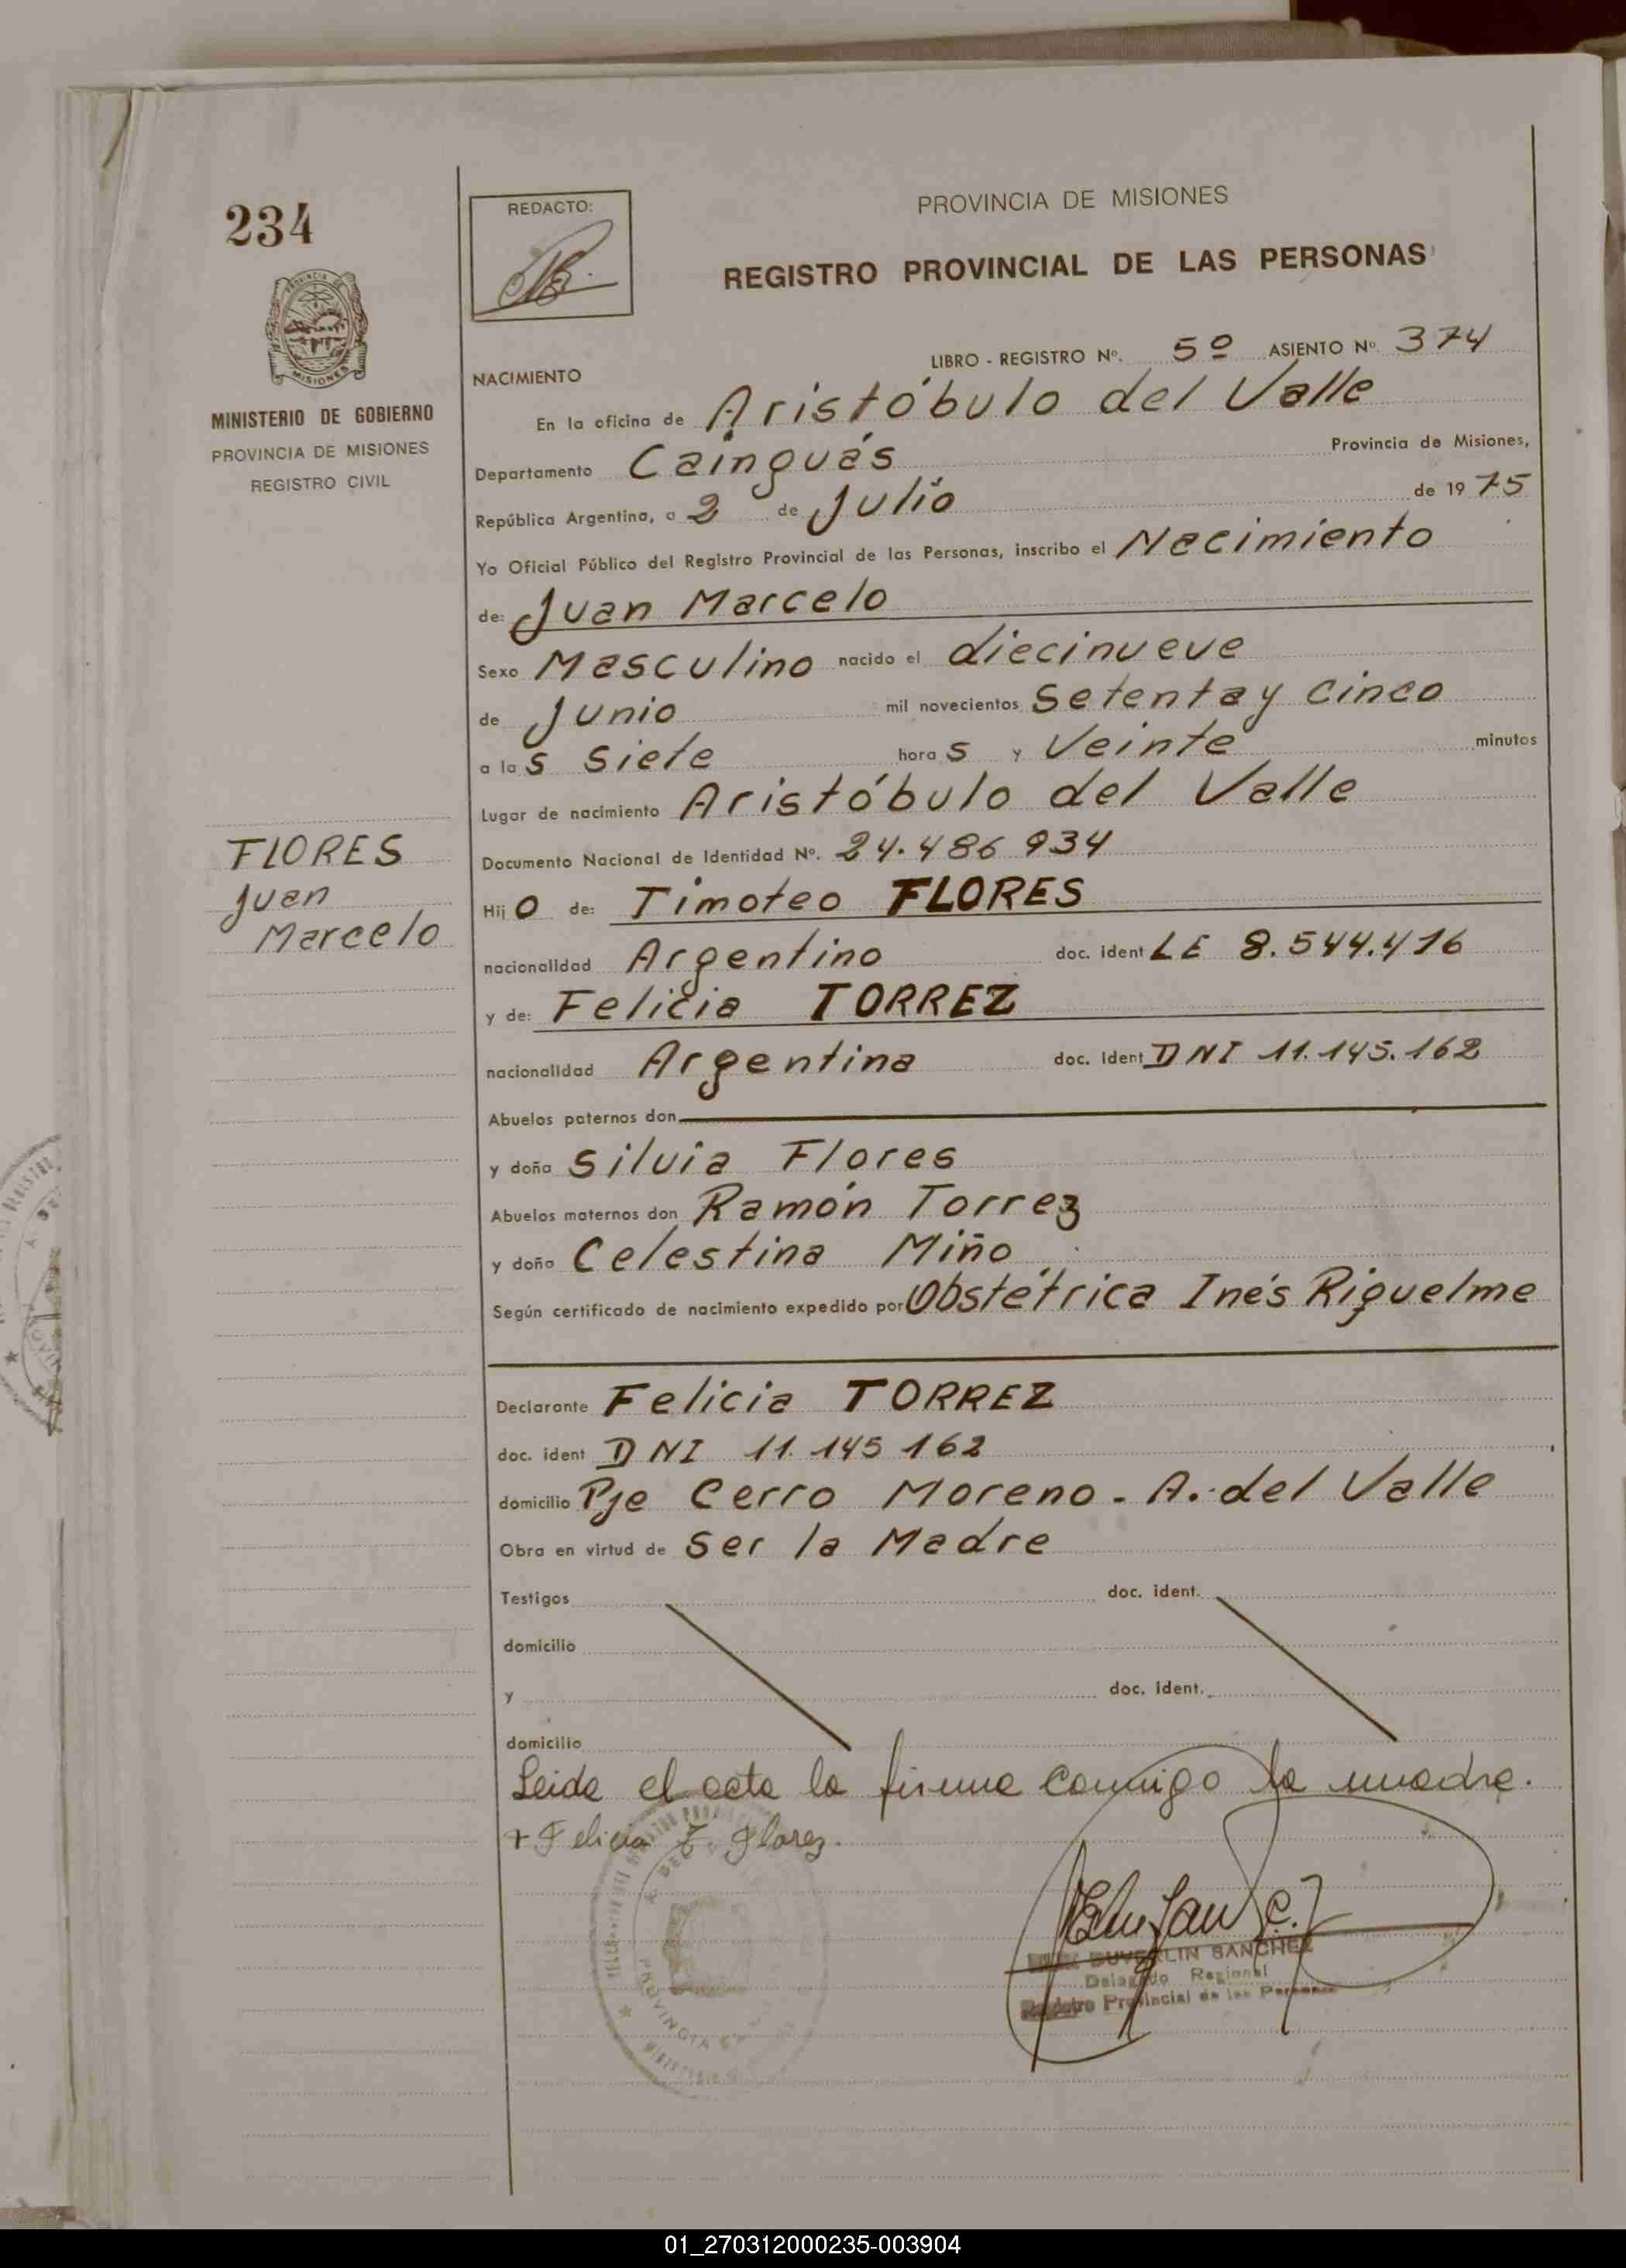 234
PROVINCIA
MISIONES
MINISTERIO DE GOBIERNO
PROVINCIA DE MISIONES
REGISTRO CIVIL
FLORES
Juan
Marcelo
REDACTO:
PROVINCIA DE MISIONES
REGISTRO PROVINCIAL DE LAS PERSONAS
LIBRO - REGISTRO Nº. 5º ASIENTO Nº 374
NACIMIENTO
En la oficina de Aristóbulo del Valle
Departamento Cainguás Provincia de Misiones,
República Argentina, a 2 de Julio de 1975
Yo Oficial Público del Registro Provincial de las Personas, inscribo el Nacimiento
de: Juan Marcelo
Sexo Masculino nacido el diecinueve
de Junio mil novecientos Setenta y cinco
a las siete horas y Veinte minutos
Lugar de nacimiento Aristóbulo del Valle
Documento Nacional de Identidad Nº. 24.486 934
Hijo de: Timoteo FLORES
nacionalidad Argentino doc. ident LE 8.544.416
y de: Felicia TORREZ
nacionalidad Argentina doc. ident DNI 11.145.162
Abuelos paternos don
y doña Silvia Flores
Abuelos maternos don Ramón Torrez
y doña Celestina Miño
Según certificado de nacimiento expedido por Obstétrica Inés Riquelme
Declarante Felicia TORREZ
doc. ident DNI 11.145 162
domicilio Pje Cerro Moreno - A. del Valle
Obra en virtud de Ser la Madre
Testigos doc. ident.
domicilio
y doc. ident.
domicilio
Leida el acta la firma conmigo la madre.
+ Felicia T. Florez.
SANCHEZ
Delegado Regional
Registro Provincial de las Personas
PROVINCIA
01_270312000235-003904